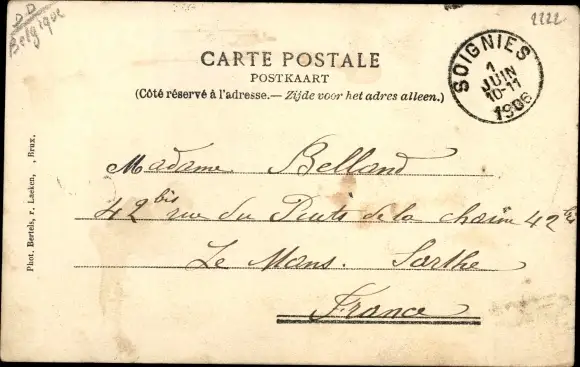 DD
Belgique
2222
CARTE POSTALE
POSTKAART
(Côté réservé à l'adresse.— Zijde voor het adres alleen.)
SOIGNIES
1
JUIN
10-11
1906
Madame Belland
42 bis rue du Puits de la chaîne 42 bis
Le Mans. Sarthe
France
Phot. Bertels, r. Laeken, , Brux.